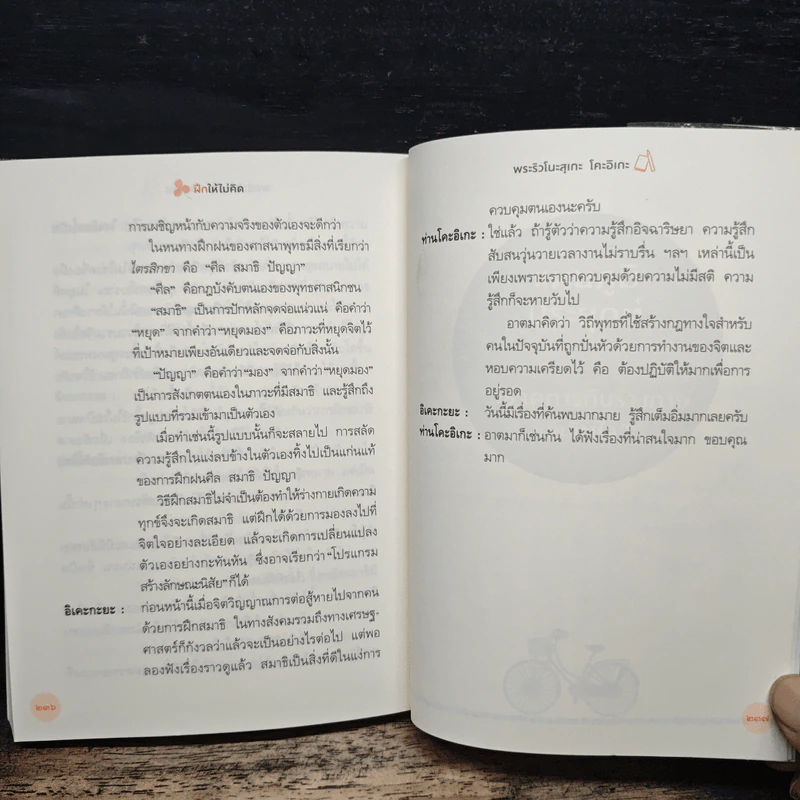 ฝึกให้ไม่คิด
การเผชิญหน้ากับความจริงของตัวเองจะดีกว่า
ในหนทางฝึกฝนของศาสนาพุทธมีสิ่งที่เรียกว่า
ไตรสิกขา คือ “ศีล สมาธิ ปัญญา”
“ศีล” คือกฎบังคับตนเองของพุทธศาสนิกชน
“สมาธิ” เป็นการปักหลักจดจ่อแน่วแน่ คือคำว่า
“หยุด” จากคำว่า “หยุดมอง” คือภาวะที่หยุดจิตไว้
ที่เป้าหมายเพียงอันเดียวและจดจ่อกับสิ่งนั้น
“ปัญญา” คือคำว่า “มอง” จากคำว่า “หยุดมอง”
เป็นการสังเกตตนเองในภาวะที่มีสมาธิ และรู้สึกถึง
รูปแบบที่รวมเข้ามาเป็นตัวเอง
เมื่อทำเช่นนี้รูปแบบนั้นก็จะสลายไป การสลัด
ความรู้สึกในแง่ลบข้างในตัวเองทิ้งไปเป็นแก่นแท้
ของการฝึกฝนศีล สมาธิ ปัญญา
วิธีฝึกสมาธิไม่จำเป็นต้องทำให้ร่างกายเกิดความ
ทุกข์จึงจะเกิดสมาธิ แต่ฝึกได้ด้วยการมองลงไปที่
จิตใจอย่างละเอียด แล้วจะเกิดการเปลี่ยนแปลง
ตัวเองอย่างกะทันหัน ซึ่งอาจเรียกว่า “โปรแกรม
สร้างลักษณะนิสัย” ก็ได้
อิเคะกะยะ : ก่อนหน้านี้เมื่อจิตวิญญาณการต่อสู้หายไปจากคน
ด้วยการฝึกสมาธิ ในทางสังคมรวมถึงทางเศรษฐ-
ศาสตร์ก็กังวลว่าแล้วจะเป็นอย่างไรต่อไป แต่พอ
ลองฟังเรื่องราวดูแล้ว สมาธิเป็นสิ่งที่ดีในแง่การ
๒๓๖
พระริวโนะสุเกะ โคะอิเกะ
ควบคุมตนเองนะครับ
ท่านโคะอิเกะ : ใช่แล้ว ถ้ารู้ตัวว่าความรู้สึกอิจฉาริษยา ความรู้สึก
สับสนวุ่นวายเวลางานไม่ราบรื่น ฯลฯ เหล่านี้เป็น
เพียงเพราะเราถูกควบคุมด้วยความไม่มีสติ ความ
รู้สึกก็จะหายวับไป
อาตมาคิดว่า วิถีพุทธที่ใช้สร้างกฎทางใจสำหรับ
คนในปัจจุบันที่ถูกปั่นหัวด้วยการทำงานของจิตและ
หอบความเครียดไว้ คือ ต้องปฏิบัติให้มากเพื่อการ
อยู่รอด
อิเคะกะยะ : วันนี้มีเรื่องที่ค้นพบมากมาย รู้สึกเต็มอิ่มมากเลยครับ
ท่านโคะอิเกะ : อาตมาก็เช่นกัน ได้ฟังเรื่องที่น่าสนใจมาก ขอบคุณ
มาก
๒๓๗